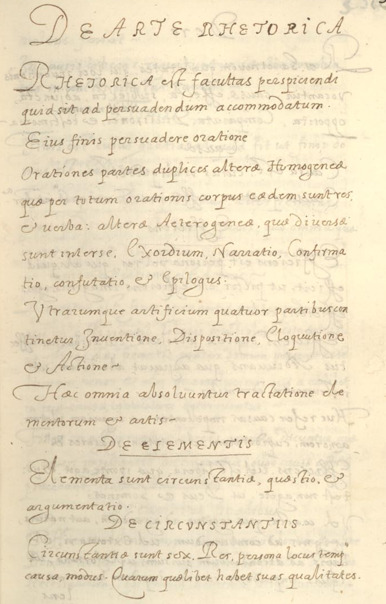 DE ARTE RHETORICA
RHETORICA est facultas perspiciendi
quid sit ad persuadendum accommodatum.
Eius finis persuadere oratione
Orationes partes duplices alteræ Homogeneæ
quæ per totum orationis corpus eædem sunt res,
& verba: alteræ Aeterogeneæ, quæ diversæ
sunt inter se, Exordium, Narratio, Confirma
tio, confutatio, & Epilogus:
Utrarumque artificium quatuor partibus con
tinetur Inventione, Dispositione, Eloqutione
& Actione-
Hæc omnia absolvuntur tractatione ele
mentorum & artis-
DE ELEMENTIS
Elementa sunt circunstantiæ, quæstio, &
argumentatio.
DE CIRCVNSTANTIIS
Circunstantiæ sunt sex. Res, persona locus temp
causa, modus. Quarum quælibet habet suas qualitates.